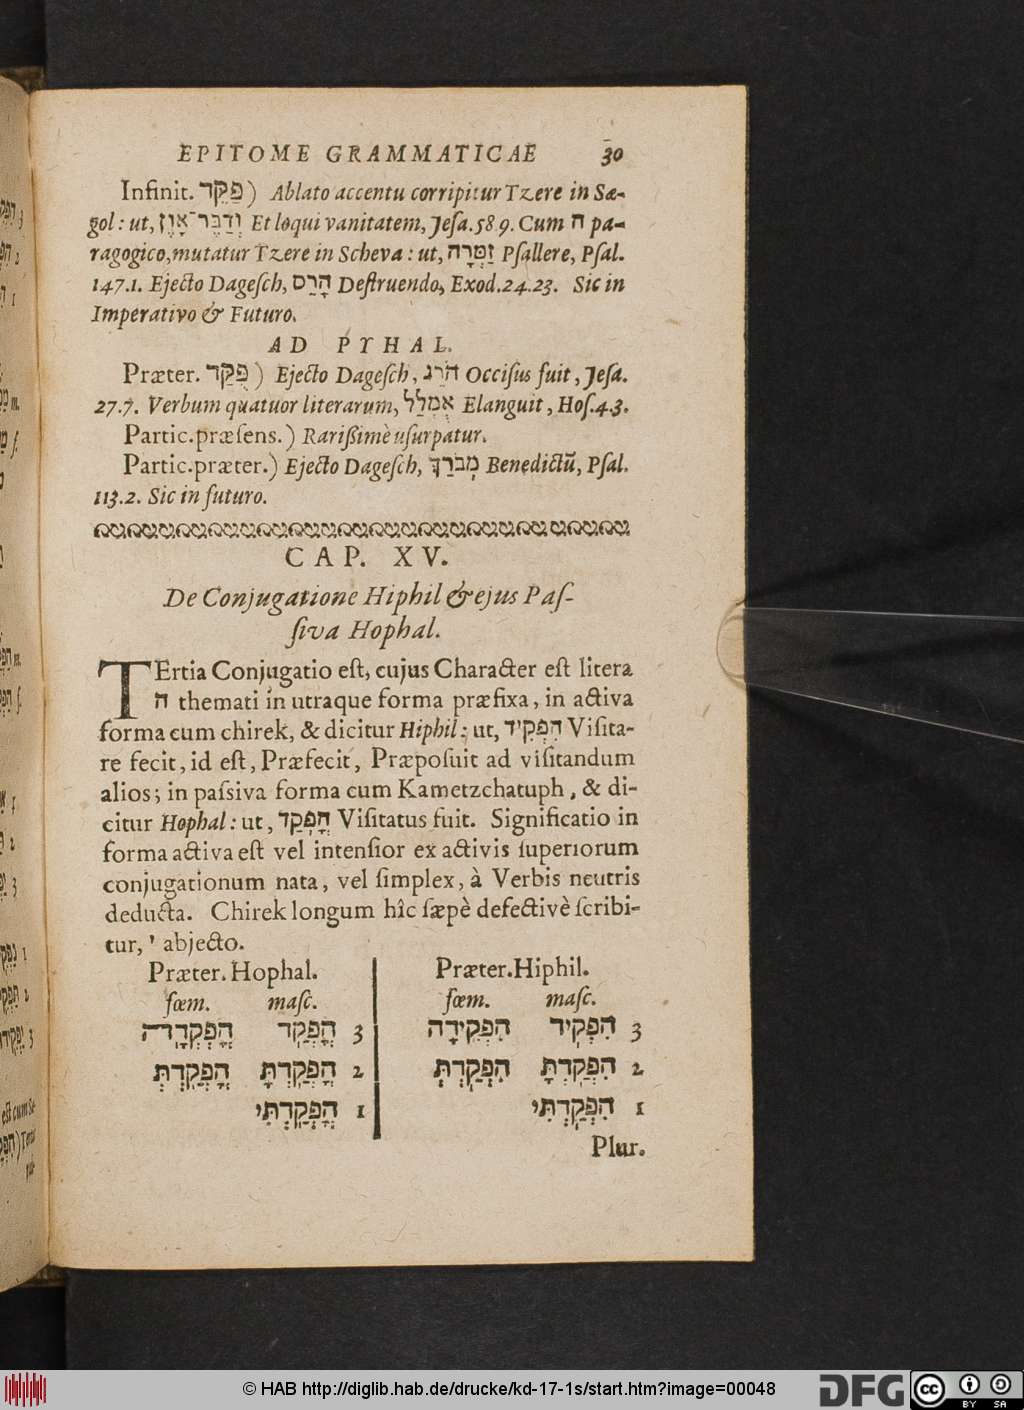 EPITOME GRAMMATICAE 30
Infinit. פַּקֵּד) Ablato accentu corripitur Tzere in Sæ-
gol: ut, וְדַבֶּר־אָוֶן Et loqui vanitatem, Jesa. 58 9. Cum ה pa-
ragogico, mutatur Tzere in Scheva: ut, זַמְּרָה Psallere, Psal.
147.1. Ejecto Dagesch, הָרֵס Destruendo, Exod. 24.23. Sic in
Imperativo & Futuro.
AD PYHAL.
Præter. פֻּקַּד) Ejecto Dagesch, הֹרַג Occisus fuit, Jesa.
27.7. Verbum quatuor literarum, אֻמְלַל Elanguit, Hos. 4.3.
Partic. præsens.) Rarißimè usurpatur.
Partic. præter.) Ejecto Dagesch, מְבֹרַךְ Benedictū, Psal.
113.2. Sic in futuro.
CAP. XV.
De Conjugatione Hiphil & ejus Pas-
siva Hophal.
TErtia Conjugatio est, cujus Character est litera
ה themati in utraque forma præfixa, in activa
forma cum chirek, & dicitur Hiphil: ut, הִפְקִיד Visita-
re fecit, id est, Præfecit, Præposuit ad visitandum
alios; in passiva forma cum Kametzchatuph, & di-
citur Hophal: ut, הָפְקַד Visitatus fuit. Significatio in
forma activa est vel intensior ex activis superiorum
conjugationum nata, vel simplex, à Verbis neutris
deducta. Chirek longum hîc sæpè defectivè scribi-
tur, י abjecto.
Præter. Hophal. Præter. Hiphil.
fœm. masc. fœm. masc.
הָפְקְדָה הָפְקַד 3 הִפְקִידָה הִפְקִיד 3
הָפְקַדְתְּ הָפְקַדְתָּ 2 הִפְקַדְתְּ הִפְקַדְתָּ 2
הָפְקַדְתִּי 1 הִפְקַדְתִּי 1
Plur.
© HAB http://diglib.hab.de/drucke/kd-17-1s/start.htm?image=00048 DFG cc BY SA